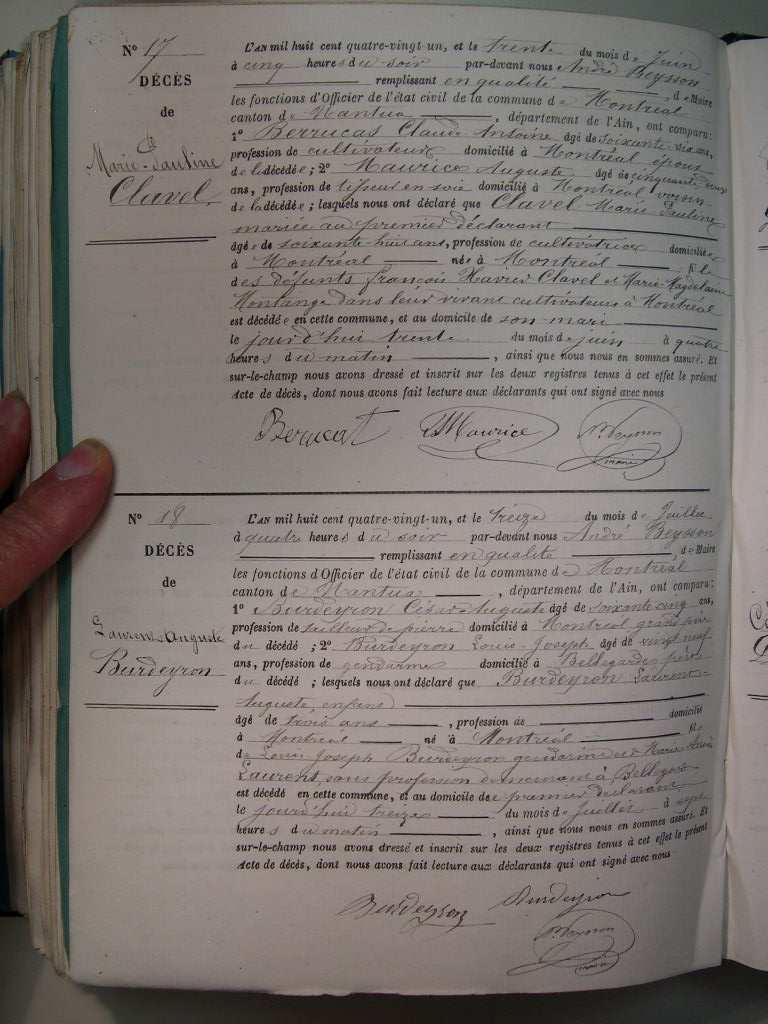 N° 17
DÉCÈS
de
Marie-Pauline
Clavel
L'AN mil huit cent quatre-vingt-un, et le trente du mois de Juin
à cinq heures du soir par-devant nous André Beysson
remplissant en qualité de Maire
les fonctions d'Officier de l'état civil de la commune de Montréal
canton de Nantua, département de l'Ain, ont comparu:
1° Berrucas Claude Antoine âgé de soixante-six ans,
profession de cultivateur domicilié à Montréal époux
de la décédée; 2° Maurice Auguste âgé de cinquante
ans, profession de tisseur en soie domicilié à Montréal voisin
de la décédée; lesquels nous ont déclaré que Clavel Marie Pauline
mariée au premier déclarant
âgée de soixante-huit ans, profession de cultivatrice domiciliée
à Montréal née à Montréal fille
des défunts françois Xavier Clavel et Marie-Magdelaine
Montange dans leur vivant cultivateurs à Montréal
est décédée en cette commune, et au domicile de son mari
le jourd'hui trente du mois de juin à quatre
heures du matin, ainsi que nous nous en sommes assuré. Et
sur-le-champ nous avons dressé et inscrit sur les deux registres tenus à cet effet le présent
Acte de décès, dont nous avons fait lecture aux déclarants qui ont signé avec nous
Berrucat Maurice
maire
N° 18
DÉCÈS
de
Laurent-Auguste
Burdeyron
L'AN mil huit cent quatre-vingt-un, et le treize du mois de Juillet
à quatre heures du soir par-devant nous André Beysson
remplissant en qualité de Maire
les fonctions d'Officier de l'état civil de la commune de Montréal
canton de Nantua, département de l'Ain, ont comparu:
1° Burdeyron César Auguste âgé de soixante cinq ans,
profession de tailleur de pierre domicilié à Montréal grand père
du décédé; 2° Burdeyron Louis-Joseph âgé de vingt neuf
ans, profession de gendarme domicilié à Bellegarde père
du décédé; lesquels nous ont déclaré que Burdeyron Laurent
Auguste, enfant
âgé de trois ans, profession de domicilié
à Montréal né à Montréal fils
de Louis Joseph Burdeyron gendarme et de Marie
Laurent, sans profession demeurant à Bellegarde
est décédé en cette commune, et au domicile de premier déclarant
le jourd'hui treize du mois de juillet à sept
heures du matin, ainsi que nous nous en sommes assuré. Et
sur-le-champ nous avons dressé et inscrit sur les deux registres tenus à cet effet le présent
Acte de décès, dont nous avons fait lecture aux déclarants qui ont signé avec nous
Burdeyron Burdeyron
maire